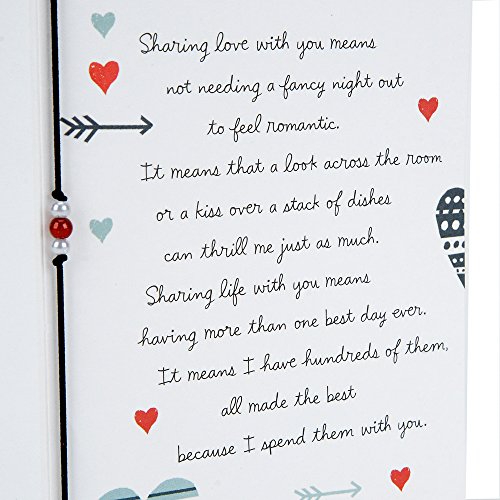 Sharing love with you means
not needing a fancy night out
to feel romantic.
It means that a look across the room
or a kiss over a stack of dishes
can thrill me just as much.
Sharing life with you means
having more than one best day ever.
It means I have hundreds of them,
all made the best
because I spend them with you.